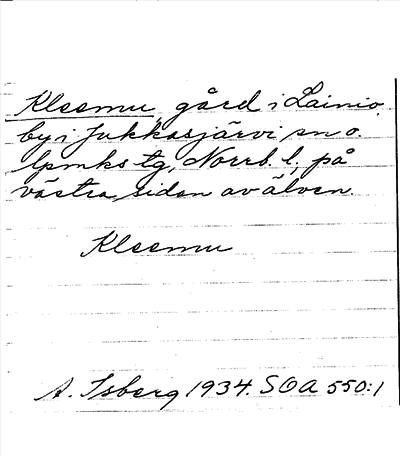 Kleemu, gård i Lainio
by i Jukkasjärvi sn o.
lpmks tg, Norrb. l., på
västra sidan av älven.
Kleemu
A. Isberg 1934. SOA 550:1